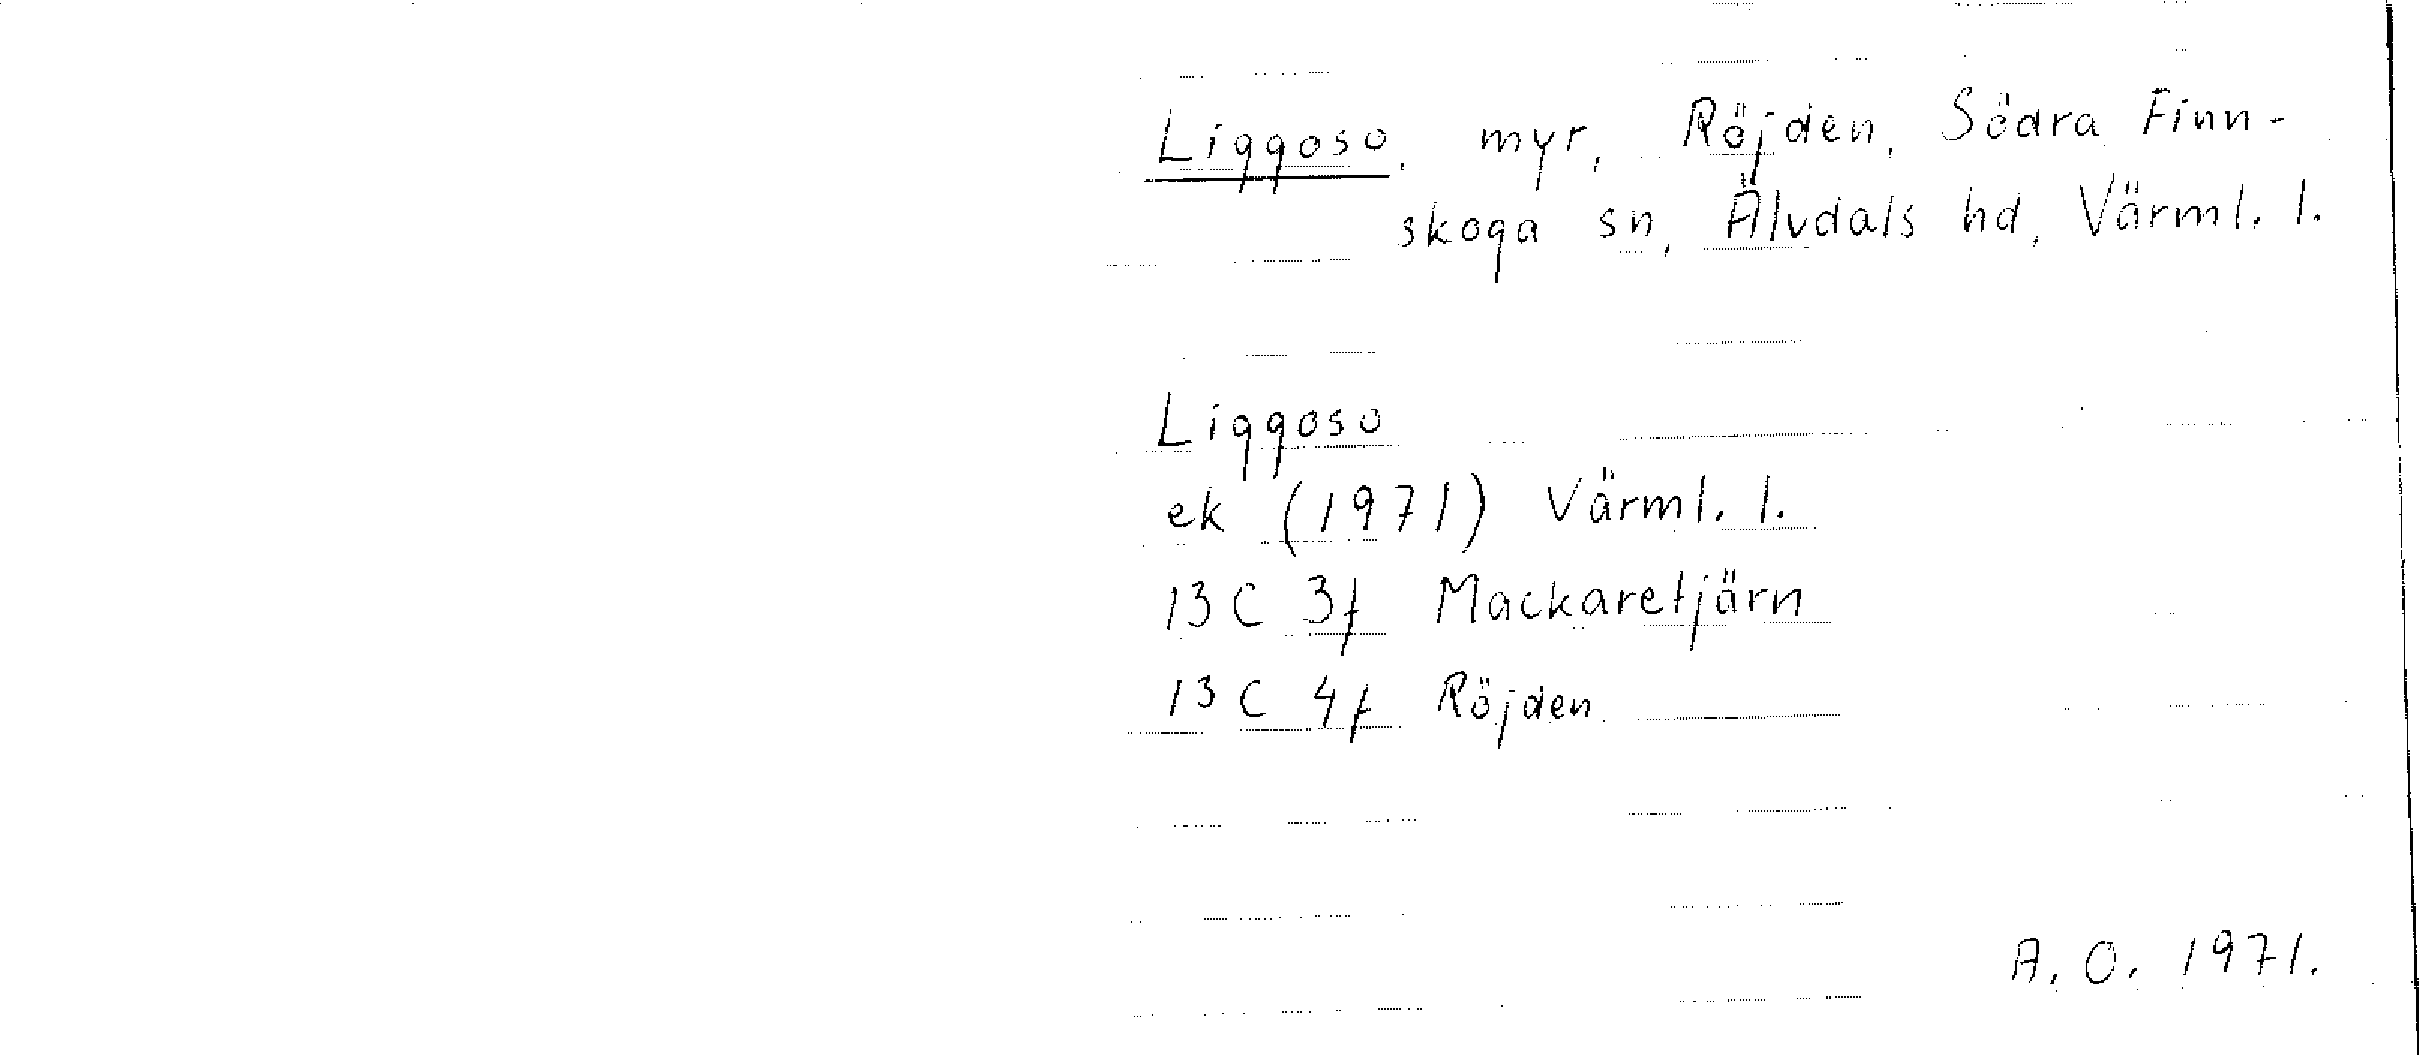 Liggoso, myr, Röjden, Södra Finn-
skoga sn, Älvdals hd, Värml. l.
Liggoso
ek (1971) Värml. l.
13C 3f Mackaretjärn
13C 4f Röjden
A. O. 1971.